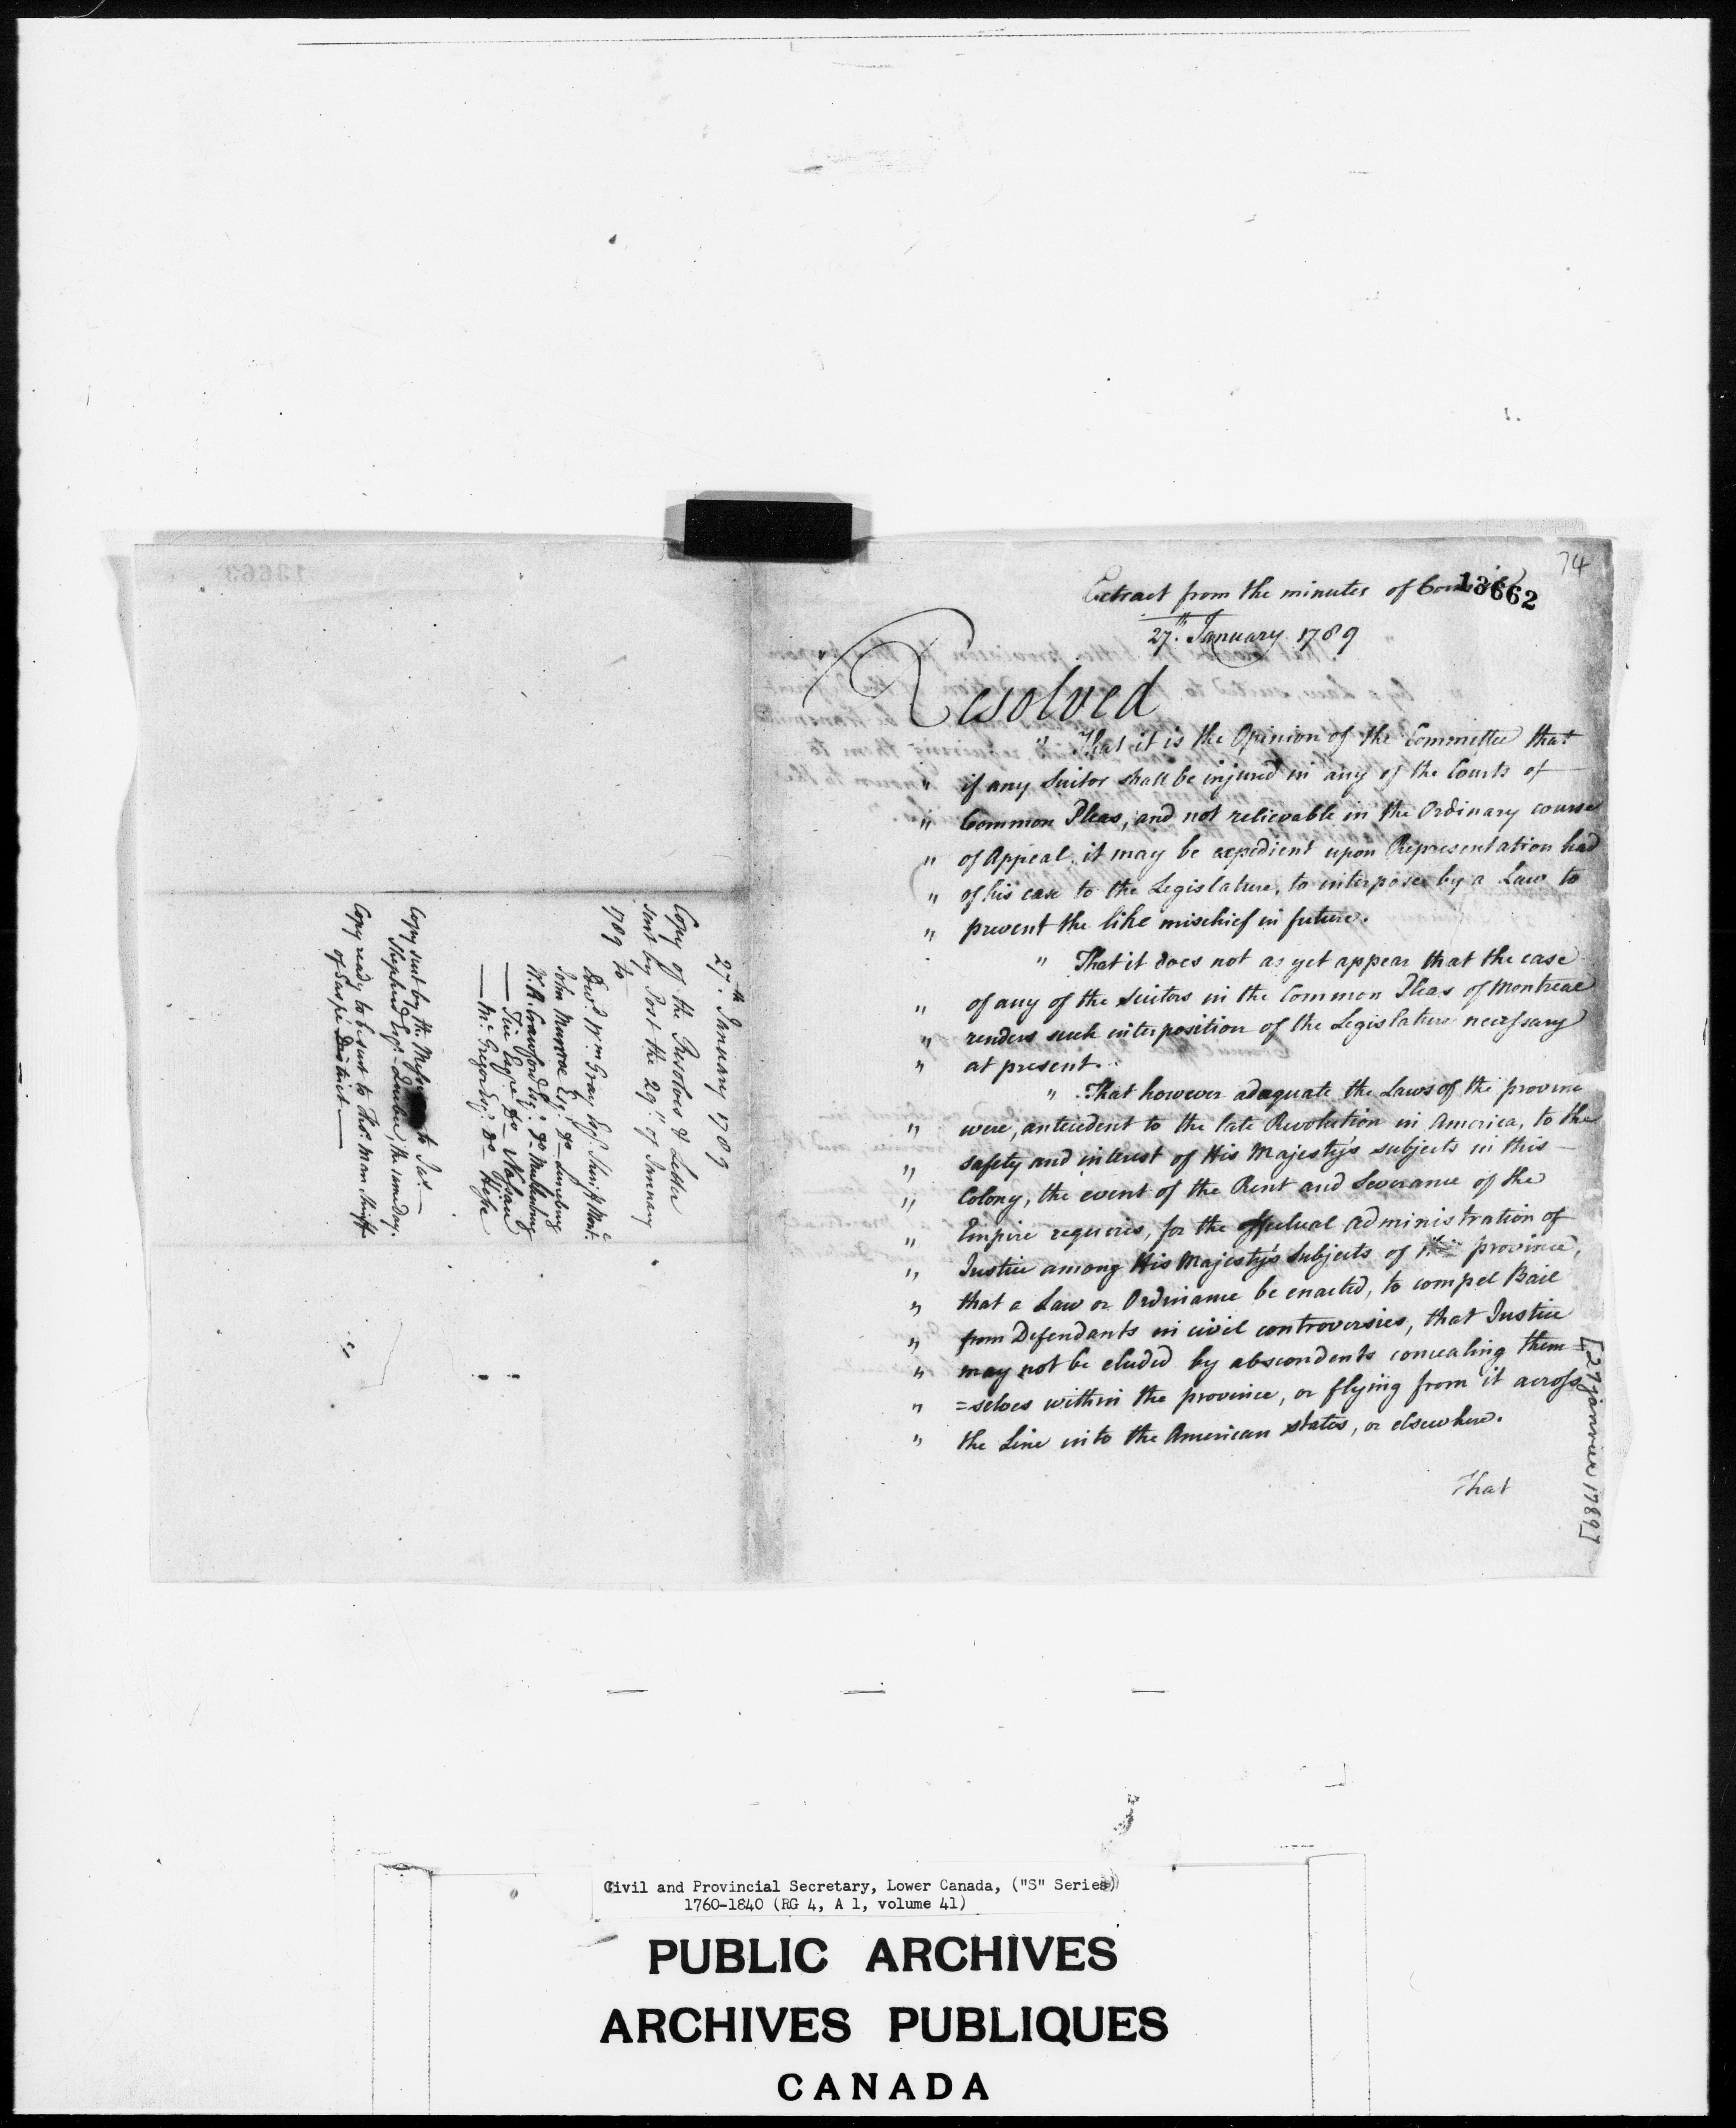 74
Extract from the minutes of Council
13662
27th January 1789
Resolved
" That it is the Opinion of the Committee that
" if any Suitor shall be injured in any of the Courts of
" Common Pleas, and not relievable in the Ordinary course
" of Appeal, it may be expedient upon Representation had
" of his case to the Legislature, to interpose by a Law to
" prevent the like mischief in future.
" That it does not as yet appear that the case
" of any of the Suitors in the Common Pleas of Montreal
" renders such interposition of the Legislature necessary
" at present.
" That however adequate the Laws of the province
" were, antecedent to the late Revolution in America, to the
" safety and interest of His Majesty's subjects in this
" Colony, the event of the Rent and Severance of the
" Empire requires, for the effectual administration of
" Justice among His Majesty's Subjects of province,
" that a Law or Ordinance be enacted, to compel Bail
" from Defendants in civil controversies, that Justice
" may not be eluded by abscondents concealing them=
" =selves within the province, or flying from it across
" the Line into the American states, or elsewhere.
That
[27 janvier 1789]
27th January 1789
Copy of the Resolves & Letter
sent by Post the 29th of January
1789 to
Edwd Wm Gray Esqr Sheriff Montl
John Munroe Esqr do Luneburg
W. R. Crawford Esqr do Mecklenburg
— do — Nassau
— McGregor Esqr do Hesse
Copy sent by the to Jas
Shepherd Esqr Quebec, the same day.
Copy ready to be sent to Thos. Mann Sheriff
of Gaspé District
13663
Civil and Provincial Secretary, Lower Canada, ("S" Series)
1760-1840 (RG 4, A 1, volume 41)
PUBLIC ARCHIVES
ARCHIVES PUBLIQUES
CANADA